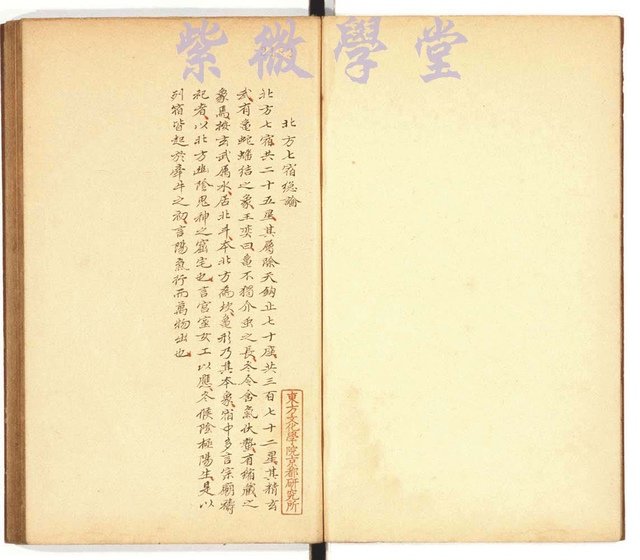 紫微學堂
北方七宿總論
北方七宿共二十五星其屬除天鈎止七十座共三百七十二星其精玄
武有龜蛇蟠結之象王奕曰龜不獨介虫之長冬令舍氣伏蟄有猶藏之
象焉按玄武屬水居北斗本北方為坎龜形乃其本象宿中多言宗廟禱
祀者以北方幽陰鬼神之窟宅也言宮室女工以應冬候陰極陽生是以
列宿皆起於牽牛之初言陽氣行而萬物出也
東方文化學院京都研究所